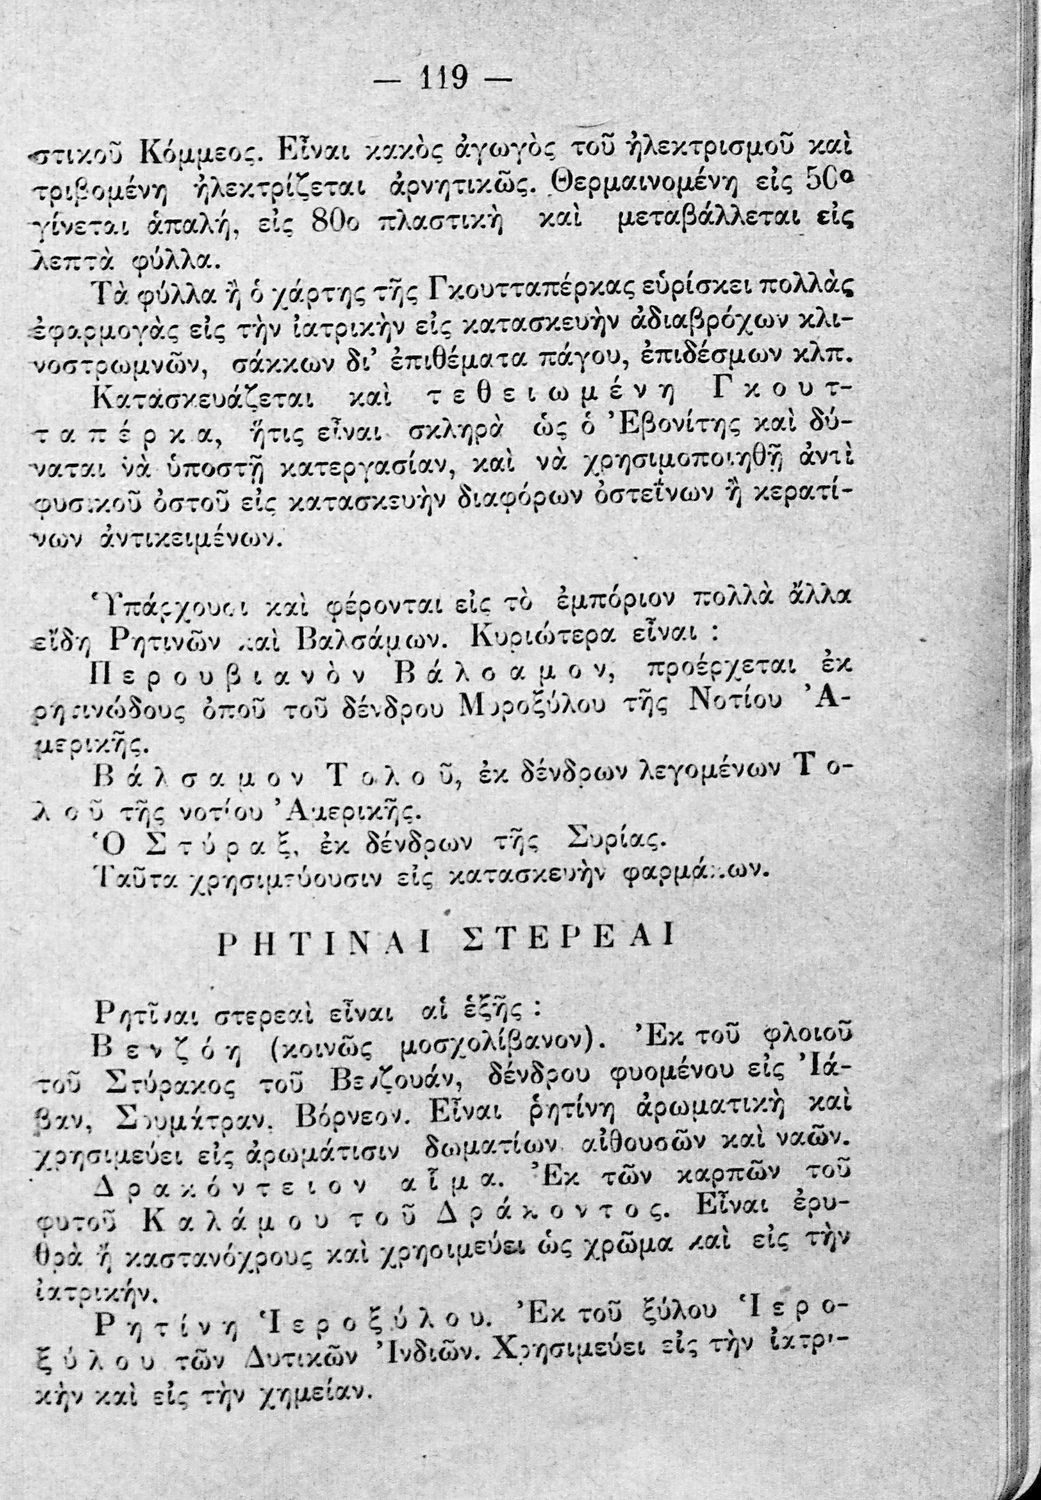 — 119 —
στικοῦ Κόμμεος. Εἶναι κακὸς ἀγωγὸς τοῦ ἠλεκτρισμοῦ καὶ
τριβομένη ἠλεκτρίζεται ἀρνητικῶς. Θερμαινομένη εἰς 50ο
γίνεται ἁπαλή, εἰς 80ο πλαστικὴ καὶ μεταβάλλεται εἰς
λεπτὰ φύλλα.
Τὰ φύλλα ἢ ὁ χάρτης τῆς Γκουτταπέρκας εὑρίσκει πολλὰς
ἐφαρμογὰς εἰς τὴν ἰατρικὴν εἰς κατασκευὴν ἀδιαβρόχων κλι-
νοστρωμνῶν, σάκκων δι' ἐπιθέματα πάγου, ἐπιδέσμων κλπ.
Κατασκευάζεται καὶ τεθειωμένη Γκουτ-
ταπέρκα, ἥτις εἶναι σκληρὰ ὡς ὁ Ἐβονίτης καὶ δύ-
ναται νὰ ὑποστῇ κατεργασίαν, καὶ νὰ χρησιμοποιηθῇ ἀντὶ
φυσικοῦ ὀστοῦ εἰς κατασκευὴν διαφόρων ὀστεΐνων ἢ κερατί-
νων ἀντικειμένων.
Ὑπάρχουσι καὶ φέρονται εἰς τὸ ἐμπόριον πολλὰ ἄλλα
εἴδη Ρητινῶν καὶ Βαλσάμων. Κυριώτερα εἶναι :
Περουβιανὸν Βάλσαμον, προέρχεται ἐκ
ρητινώδους ὀποῦ τοῦ δένδρου Μυροξύλου τῆς Νοτίου Ἀ-
μερικῆς.
Βάλσαμον Τολοῦ, ἐκ δένδρων λεγομένων Το-
λοῦ τῆς νοτίου Ἀμερικῆς.
Ὁ Στύραξ, ἐκ δένδρων τῆς Συρίας.
Ταῦτα χρησιμεύουσιν εἰς κατασκευὴν φαρμάκων.
ΡΗΤΙΝΑΙ ΣΤΕΡΕΑΙ
Ρητῖναι στερεαὶ εἶναι αἱ ἑξῆς :
Βενζόη (κοινῶς μοσχολίβανον). Ἐκ τοῦ φλοιοῦ
τοῦ Στύρακος τοῦ Βενζουάν, δένδρου φυομένου εἰς Ἰά-
βαν, Σουμάτραν, Βόρνεον. Εἶναι ῥητίνη ἀρωματικὴ καὶ
χρησιμεύει εἰς ἀρωμάτισιν δωματίων, αἰθουσῶν καὶ ναῶν.
Δρακόντειον αἷμα. Ἐκ τῶν καρπῶν τοῦ
φυτοῦ Καλάμου τοῦ Δράκοντος. Εἶναι ἐρυ-
θρὰ ἢ καστανόχρους καὶ χρησιμεύει ὡς χρῶμα καὶ εἰς τὴν
ἰατρικήν.
Ρητίνη Ἱεροξύλου. Ἐκ τοῦ ξύλου Ἱερο-
ξύλου τῶν Δυτικῶν Ἰνδιῶν. Χρησιμεύει εἰς τὴν ἰατρι-
κὴν καὶ εἰς τὴν χημείαν.